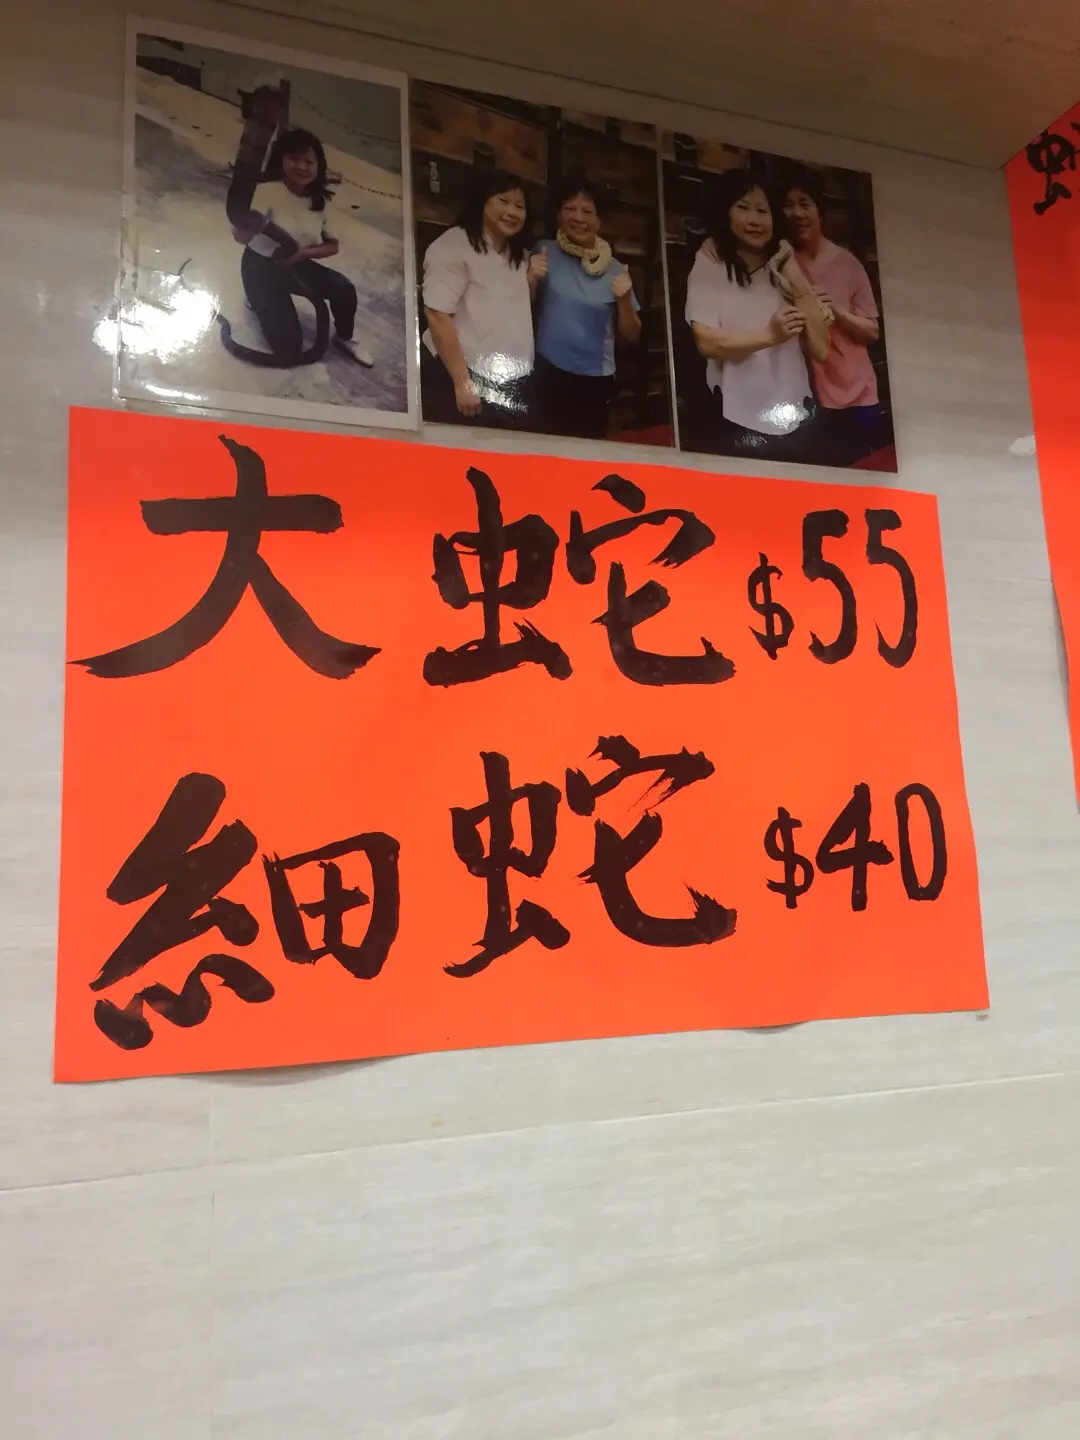 大蛇 $55
細蛇 $40